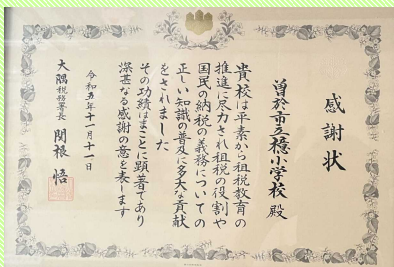 感謝状
曽於市立檍小学校 殿
貴校は平素から租税教育の
推進に尽力され租税の役割や
国民の納税の義務についての
正しい知識の普及に多大な貢献
をされました
その功績はまことに顕著であり
深甚なる感謝の意を表します
令和五年十一月十一日
大隅税務署長 関根 悟